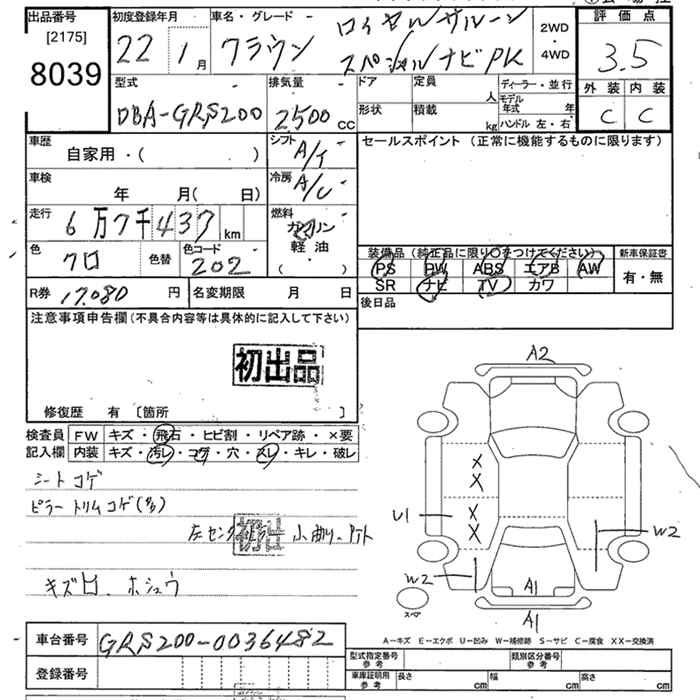 出品番号 初度登録年月 車名・グレード 評価点
[2175]
8039
22年 1月 クラウン ロイヤルサルーン
スペシャル ナビPK
2WD
・
4WD
3.5
外装 内装
C C
型式 排気量 ドア 定員 人 ディーラー・並行
DBA-GRS200 2500cc 形状 積載 kg モデル年式 年
ハンドル 左・右
車歴 シフト セールスポイント (正常に機能するものに限ります)
自家用・( ) A/T
車検 冷房
年 月(日) A/C
走行 燃料
6万7千437km ガソリン
軽油
・( )
色 色替 色コード
クロ 202
装備品 (純正品に限り○をつけてください) 新車保証書
PS PW ABS エアB AW 有・無
SR ナビ TV カワ
R券 17.080円 名変期限 月 日 後日品
注意事項申告欄(不具合内容等は具体的に記入して下さい)
初出品
修復歴 有 〔箇所 〕
検査員 FW キズ・飛石・ヒビ割・リペア跡・×要
記入欄 内装 キズ・汚レ・コゲ・穴・スレ・キレ・破レ
シートコゲ
ピラートリムコゲ
初出
小曲り
キズ ホシュウ
A2
X
X
X
X
U1
W2
W2
A1
A1
スペア
A−キズ E−エクボ U−凹み W−補修跡 S−サビ C−腐食 XX−交換済
車台番号 GRS200-0036482
型式指定番号 参考 類別区分番号 参考
登録番号
車庫証明用 参考 長さ cm 幅 cm 高さ cm